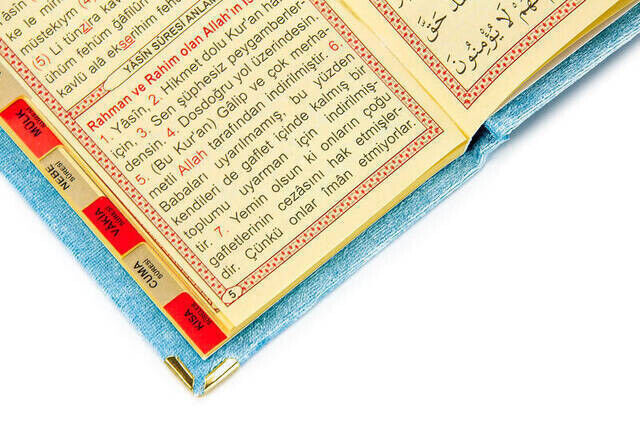 müstekıym
(5) Li tünzira kav
ühüm fehüm gâfilûn
kavlü alâ ekserihim fehüm
YÂSİN SÛRESİ ANLAM
Rahman ve Rahim olan Allah'ın is
1. Yâsin, 2. Hikmet dolu Kur'an hak
için, 3. Sen şüphesiz peygamberler-
densin. 4. Dosdoğru yol üzerindesin.
5. (Bu Kur'an) Gâlip ve çok merha-
metli Allah tarafından indirilmiştir. 6.
Babaları uyarılmamış, bu yüzden
kendileri de gaflet içinde kalmış bir
toplumu uyarman için indirilmiş-
tir. 7. Yemin olsun ki onların çoğu
gafletlerinin cezasını hak etmişler-
dir. Çünkü onlar îmân etmiyorlar.
5
MÜLK
SÛRESİ
NEBE
SÛRESİ
VÂKIA
SÛRESİ
CUMA
SÛRESİ
KISA
SÛRELER
حَقَّ
لَا يُؤْمِنُونَ